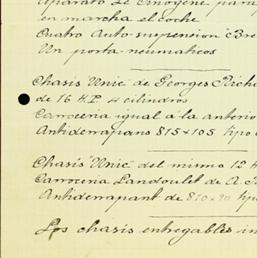 Aparato Le Cinogène para
en marcha el coche
Cuatro Auto-suspension "Bre
Un porta-neumaticos
Chasis Unic de Georges Rich
de 16 H.P. 4 cilindros
Carroceria igual a la anterio
Antiderrapans 815 x 105 tipo
Chasis Unic del mismo 12 H
Carroceria Landoulet de A.
Antiderrapant de 810 x 90 tipo
Los chasis entregables in